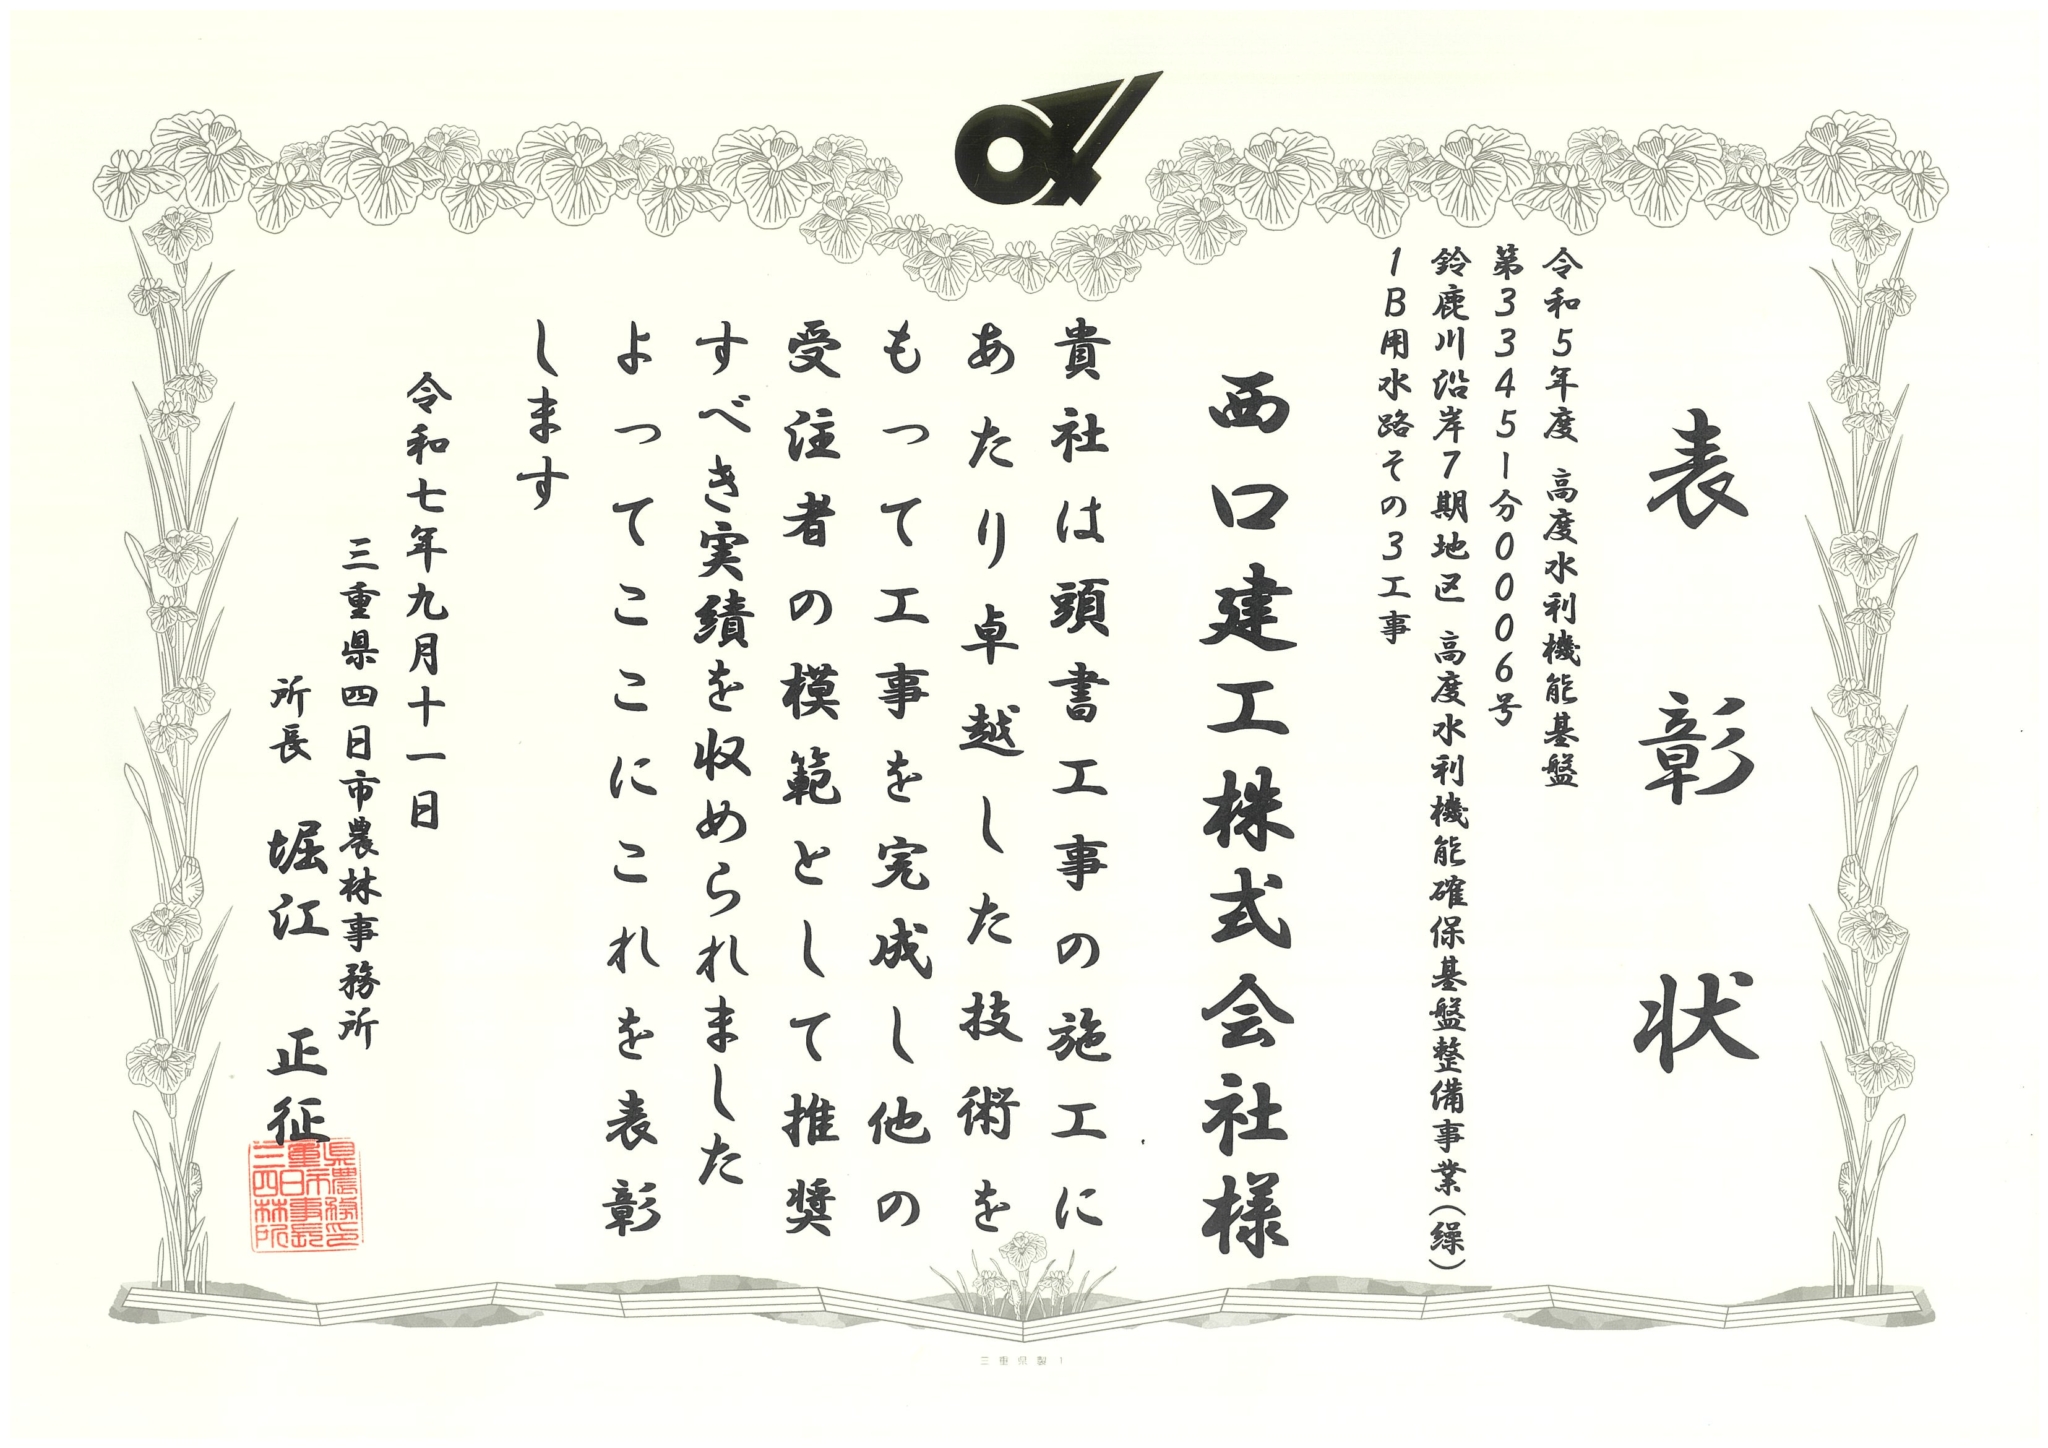 表彰状
令和5年度 高度水利機能基盤
第33451分0006号
鈴鹿川沿岸7期地区 高度水利機能確保基盤整備事業(繰)
1B用水路その3工事
西口建工株式会社様
貴社は頭書工事の施工に
あたり卓越した技術を
もって工事を完成し他の
受注者の模範として推奨
すべき実績を収められました
よってここにこれを表彰
します
令和七年九月十一日
三重県四日市農林事務所
所長 堀江 正征
三重県四日市農林事務所長印
三重県製1